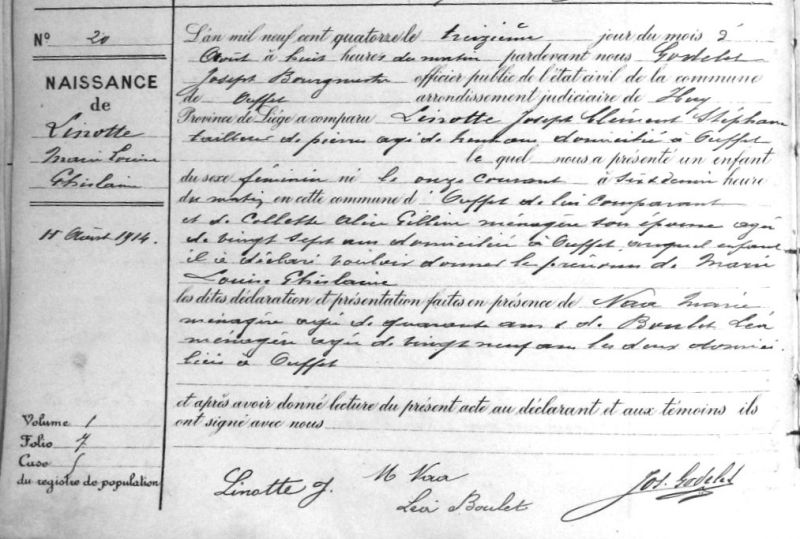 N° 20
NAISSANCE
de
Linotte
Marie Louise
Ghislaine
11 Août 1914.
Volume 1
Folio 7
Case
du registre de population
L'an mil neuf cent quatorze le treizième jour du mois d'
Août à huit heures du matin pardevant nous Godelet
Joseph Bourgmestre officier public de l'état civil de la commune
de Ouffet arrondissement judiciaire de Huy
Province de Liège a comparu Linotte Joseph Clément Stéphane
tailleur de pierres agé de ans domicilié à Ouffet
le quel nous a présenté un enfant
du sexe féminin né le onze courant à six & demie heure
du matin en cette commune d'Ouffet de lui comparant
et de Collette Alice ménagère son épouse agée
de vingt sept ans domiciliée à Ouffet auquel enfant
il a déclaré vouloir donner le prénoms de Marie
Louise Ghislaine
les dites déclaration et présentation faites en présence de Naa Marie
ménagère agée de quarante ans & de Boulet Léa
ménagère agée de vingt neuf ans les deux domici
liées à Ouffet
et après avoir donné lecture du présent acte au déclarant et aux témoins ils
ont signé avec nous
Linotte J. M Naa Jos. Godelet
Léa Boulet